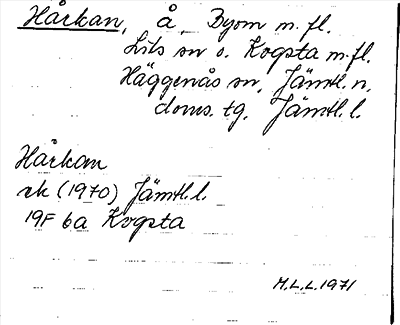 Hårkan, å, Byom m. fl.
Lits sn o. Kogsta m. fl.
Häggenås sn, Jämtl. n.
doms. tg, Jämtl. l.
Hårkan
rk (1970) Jämtl. l.
19F 6a Kogsta
M.L.L. 1971